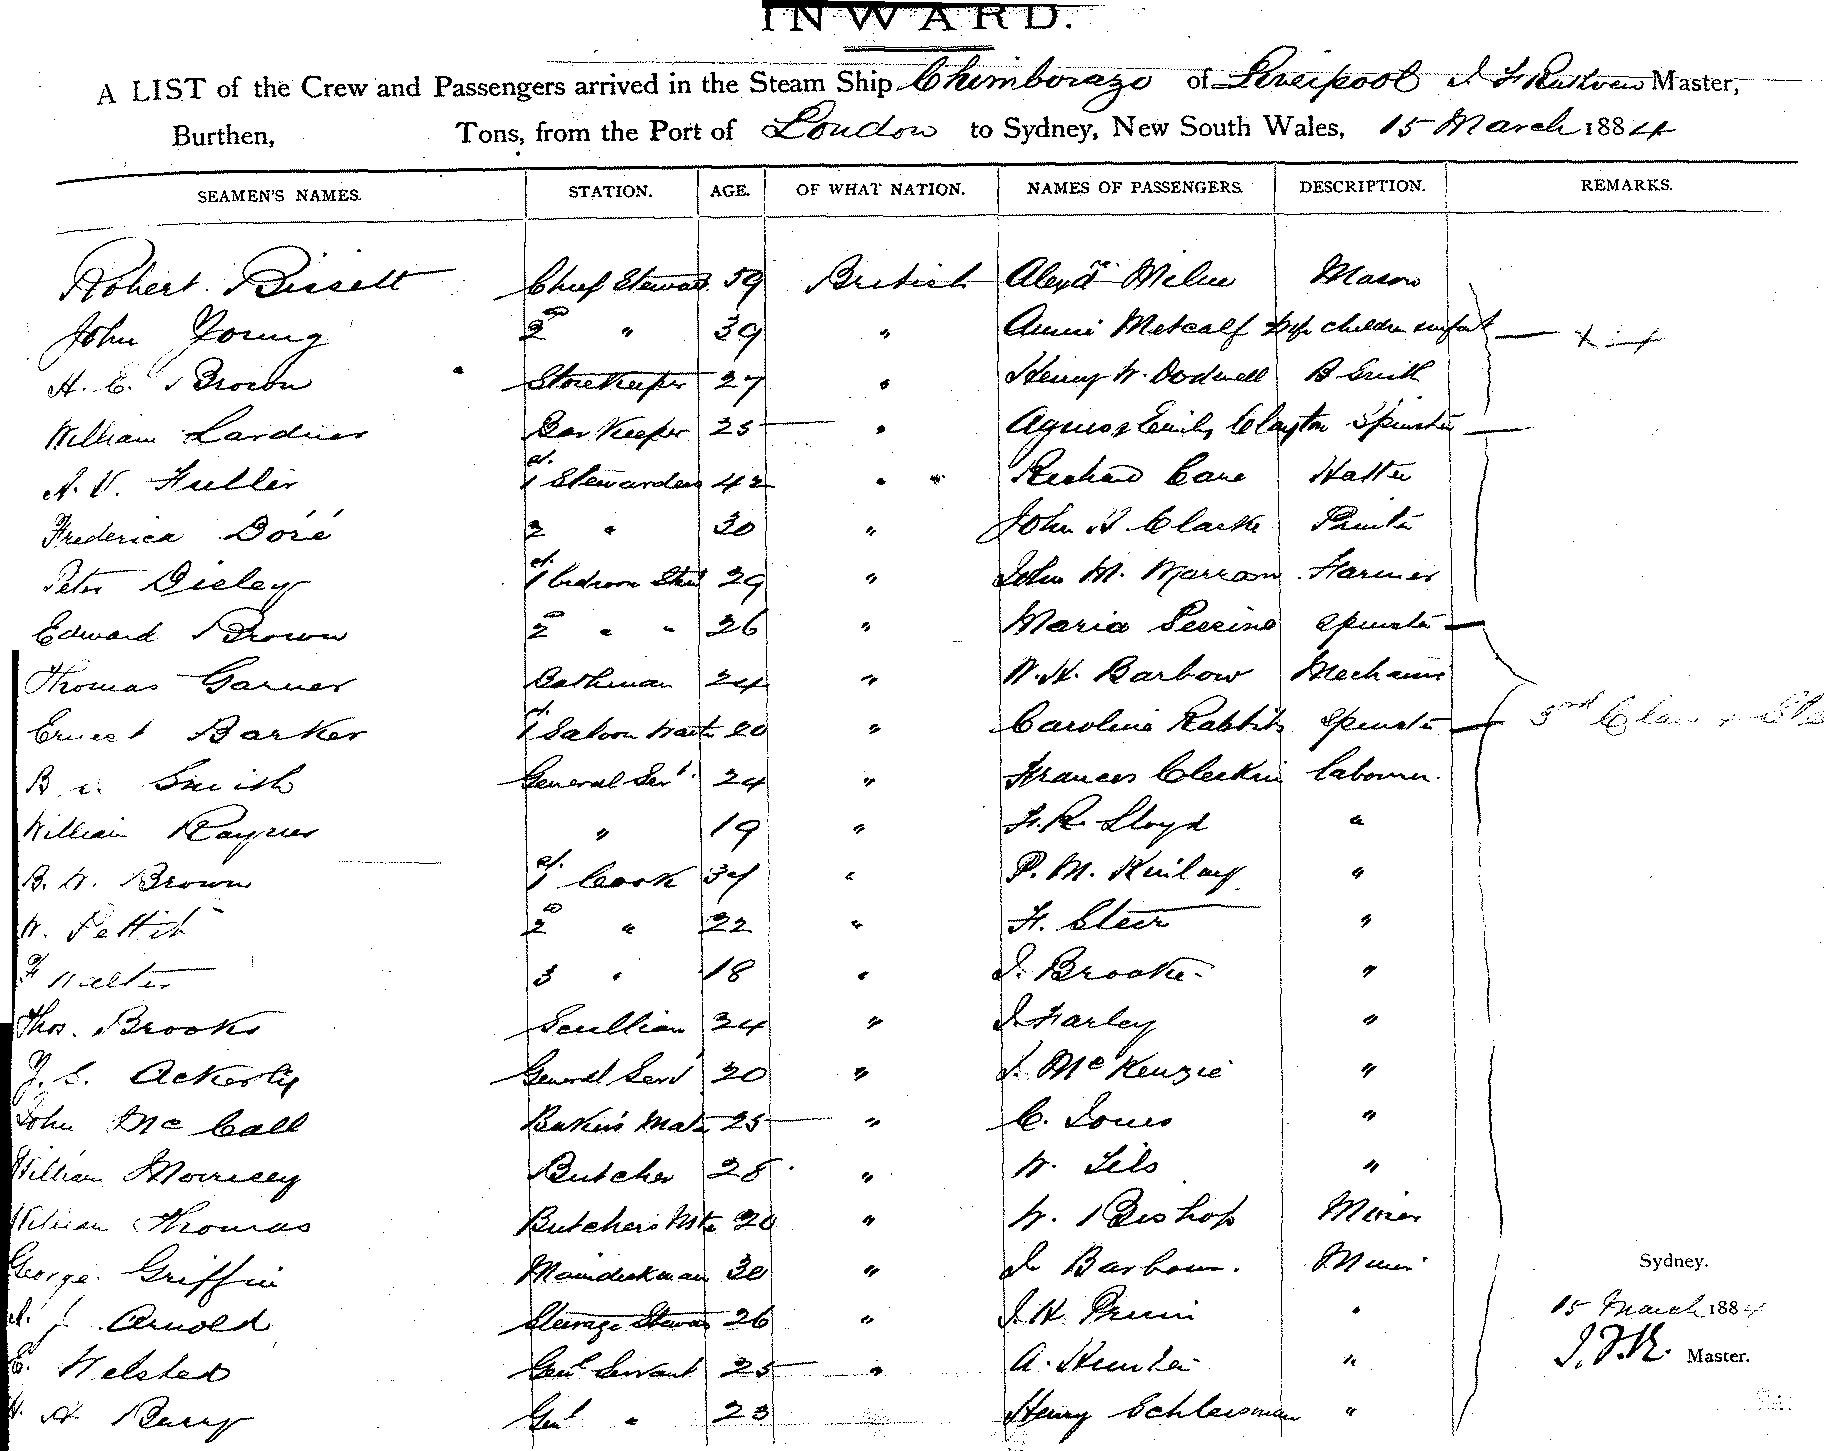 INWARD.
A LIST of the Crew and Passengers arrived in the Steam Ship Chimborazo of Liverpool J F Ruthven Master,
Burthen, Tons, from the Port of London to Sydney, New South Wales, 15 March 1884
SEAMEN'S NAMES. STATION. AGE. OF WHAT NATION. NAMES OF PASSENGERS. DESCRIPTION. REMARKS.
Robert Bissett Chief Steward 59 British Alexdr Milne Mason
John Young 2nd " 39 " Annie Metcalf children infant
H. C. Brown Storekeeper 27 " Henry W. Dodwell B Smith
William Lardner Bar Keeper 25 " Agnes & Emily Clayton Spinster
A. V. Fuller 1st Stewardess 42 " Richard Cane Hatter
Frederica Doré 2 " 30 " John H Clarke Painter
Peter Disley 1st Bedroom Stwd 29 " John M. Marram Farmer
Edward Brown 2nd " " 26 " Maria Perrine Spinster
Thomas Garner Bathman 24 " W. H. Barbow Mechanic
Ernest Barker 1st Saloon Waiter 20 " Caroline Rabbits Spinster 3rd Class
B Smith General Servt. 24 " Frances Labourer.
William Rayner " 19 " F. R. Lloyd "
B. W. Brown 1st Cook 34 " P. M. Kinlay "
W. Pettit 2nd " 22 " F. Steer "
F Walter 3 " 18 " J. Brooke "
Thos. Brooks Scullion 24 " J Farley "
J. S. Ackerly General Servt 20 " J. McKenzie "
John McCall Baker's Mate 25 " C. Jones "
William Morrisey Butcher 28 " W. "
William Thomas Butcher's Mte 20 " W. Bishop Miner
George Griffin Maindeckman 30 " J Barbour. Miner
Arnold Steerage Steward 26 " J. H. "
E. Welsted Genl Servant 25 " A. Hunter "
H. A Berry Genl " 23 " Henry Schleisman "
Sydney.
15 March 1884
J. F. R. Master.